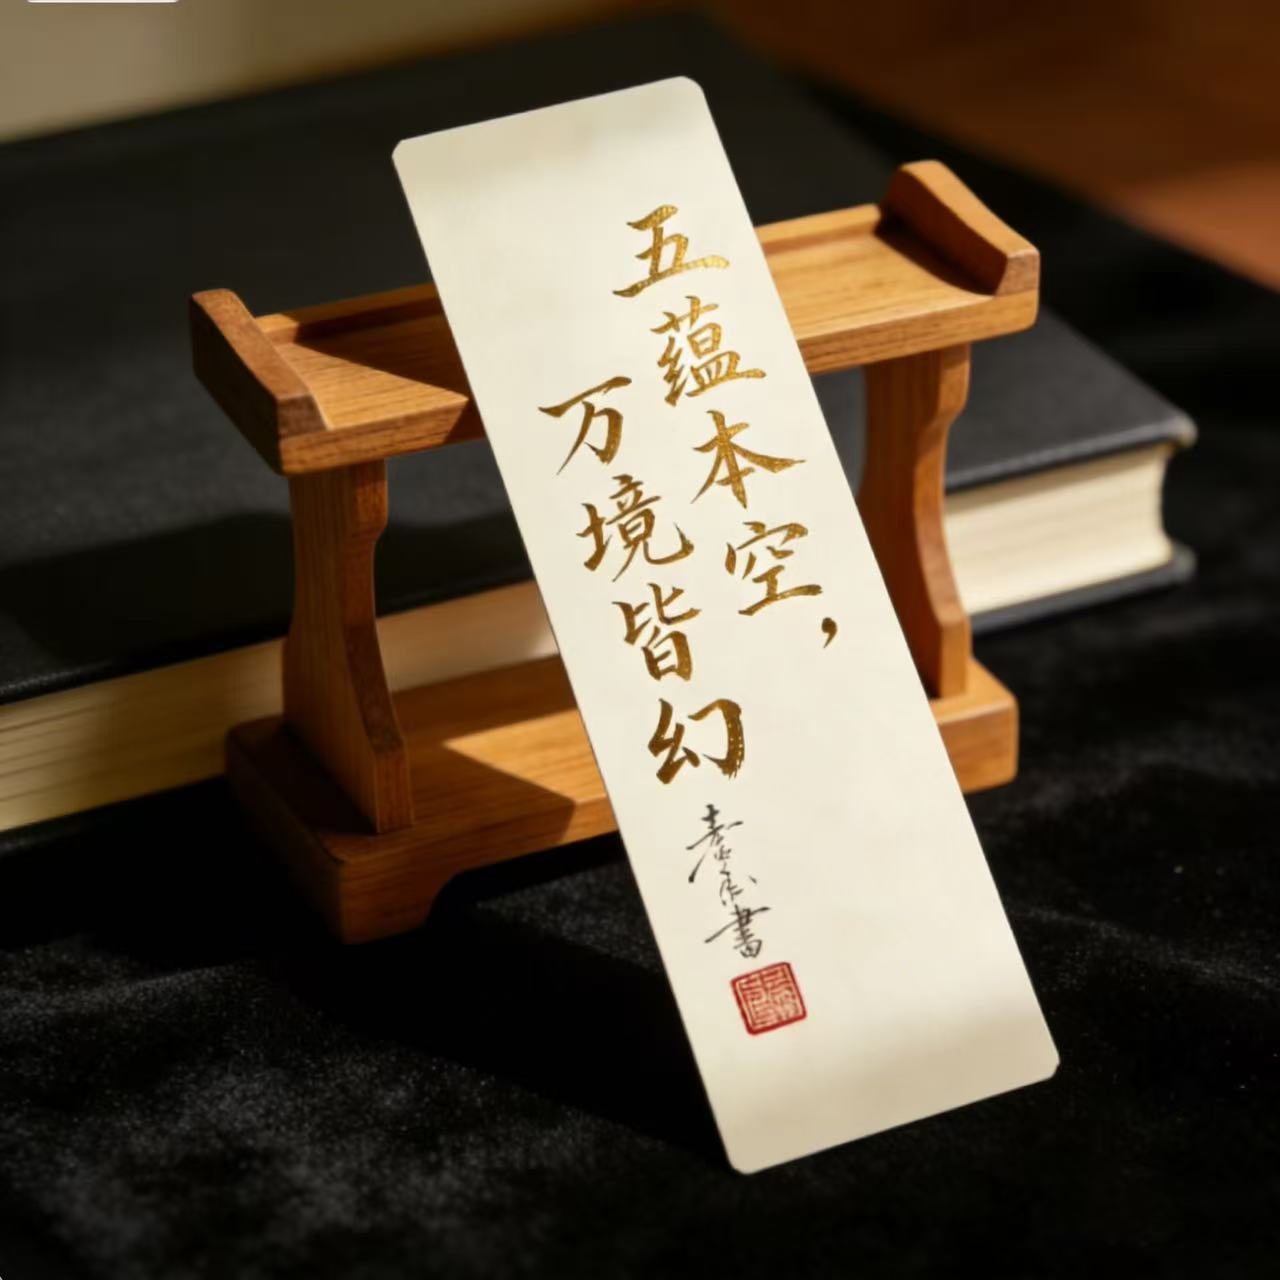 五蕴本空，
万境皆幻